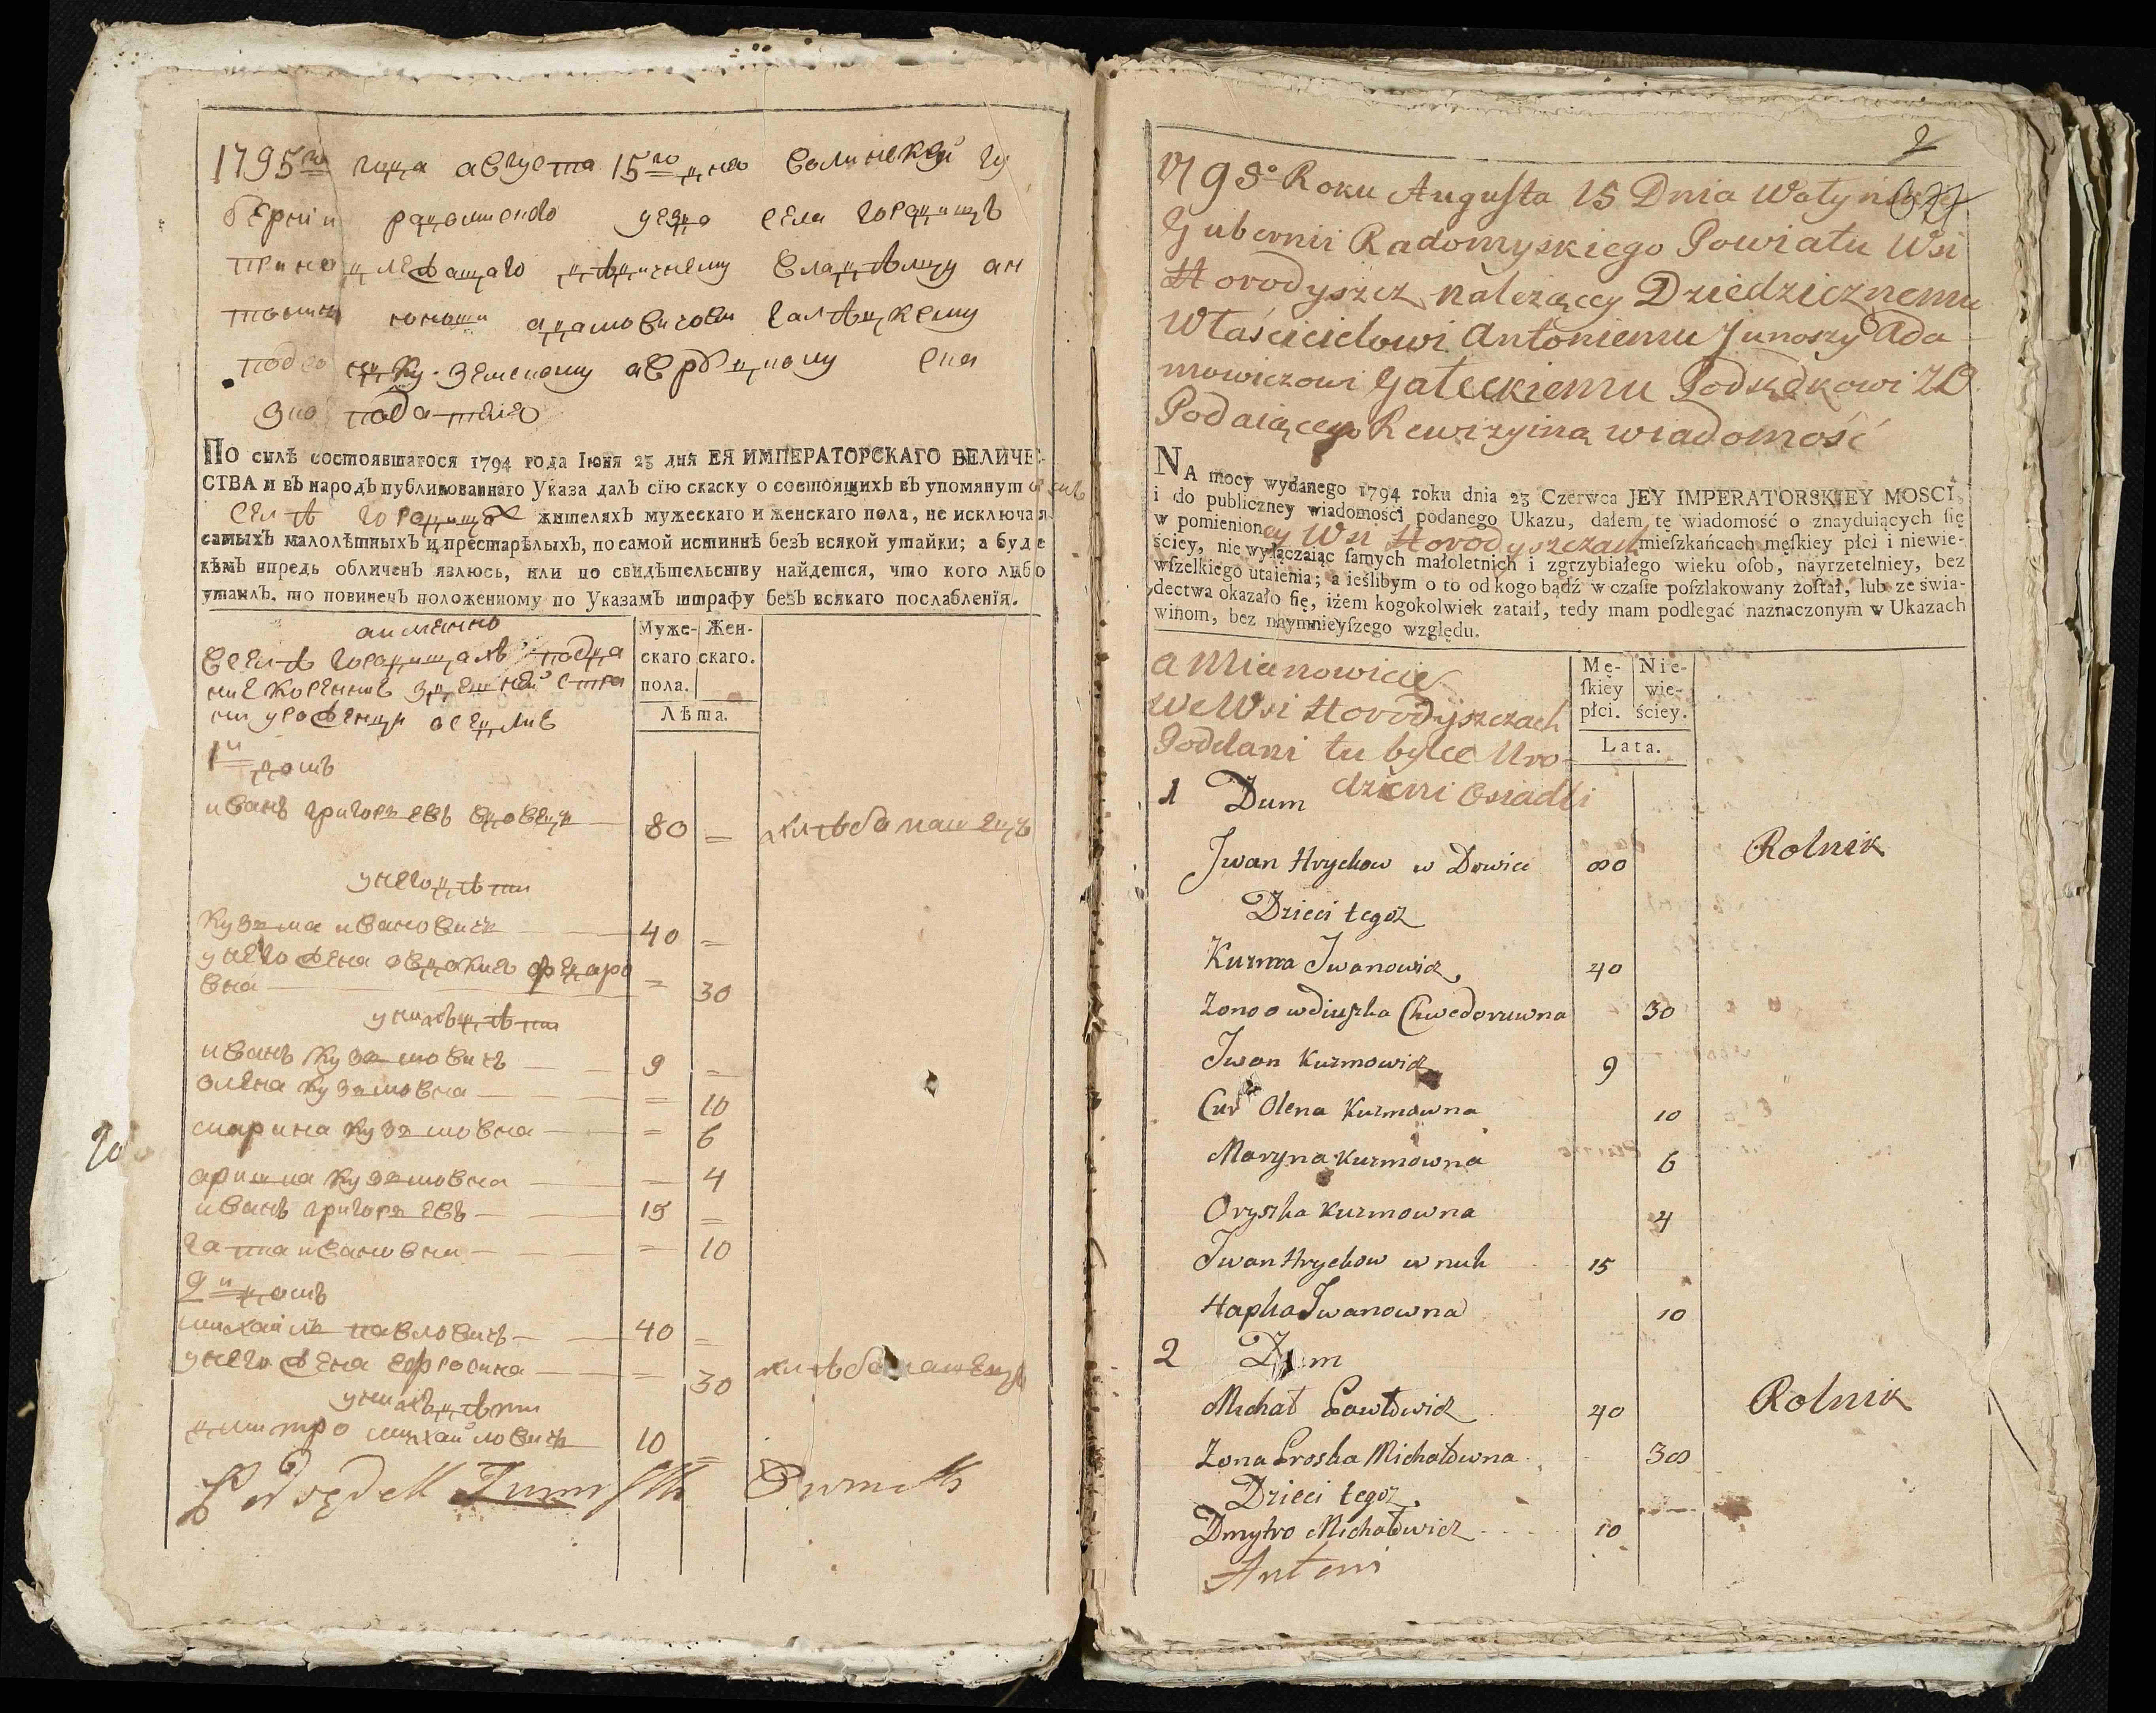 1795го года августа 15го дня волинской гу
берніи радомиского уезда села городищъ
принадлежащаго дѣдичному владѣлцу ан
тонию юноши адамовичови галѣцкому
подсодку земскому овручскому
подателя
По силѣ состоявшагося 1794 года Іюня 23 дня ЕЯ ИМПЕРАТОРСКАГО ВЕЛИЧЕ-
СТВА и въ народъ публикованнаго Указа далъ сїю скаску о состоящихъ въ упомянутомъ
селѣ городищах жителяхъ мужескаго и женскаго пола, не исключая
самыхъ малолѣтныхъ и престарѣлыхъ, по самой истиннѣ безъ всякой утайки; а буде
кѣмъ впредь обличенъ явлюсь, или по свидѣтельству найдется, что кого либо
утаилъ, то повиненъ положенному по Указамъ штрафу безъ всякаго послабленїя.
а именно
Муже- Жен-
скаго скаго.
пола.
Лѣта.
Вселѣ городищахъ подда
ние
уроженци оседлие
1й домъ
иванъ григорьевъ вдовец 80 = хлѣбопашецъ
унего дѣти
кузьма ивановичъ 40 =
унего жена овдокия федоро
вна = 30
унихъ дѣти
иванъ кузьмовичъ 9 =
олена кузьмовна = 10
марина кузьмовна = 6
аришка кузьмовна = 4
иванъ григорьевъ 15 =
гапка ивановна = 10
2й домъ
михайлъ павловичъ 40 =
унего жена ефросина = 30 хлѣбопашецъ
унихъ дѣти
дмитро михайловичъ 10 =
Podsędek
2
1795º Roku Augusta 15 Dnia Wołynskiey
Gubernii Radomyskiego Powiatu Wsi
Horodyszcz należącey Dziedzicznemu
Właścicielowi Antoniemu Junoszy Ada
mowiczowi Gałeckiemu Podsędkowi ZO.
Podaiącego Rewizyiną wiadomość
NA mocy wydanego 1794 roku dnia 23 Czerwca JEY IMPERATORSKIEY MOSCI,
i do publiczney wiadomości podanego Ukazu, dałem tę wiadomość o znayduiących się
w pomienioney Wsi Horodyszczach mieſzkańcach męſkiey płci i niewie-
ściey, nie wyłączaiąc ſamych małoletnich i zgrzybiałego wieku oſob, nayrzetelniey, bez
wſzelkiego utaienia; a ieślibym o to od kogo bądź w czaſie poſzlakowany zoſtał, lub ze świa-
dectwa okazało ſię, iżem kogokolwiek zataił, tedy mam podlegać naznaczonym w Ukazach
winom, bez naymnieyſzego względu.
a Mianowicie
Mę- Nie-
ſkiey wie-
płci. ściey.
Lata.
We Wsi Horodyszczach
Poddani tu bylce Uro
dzieni Osiadli
1 Dum
Jwan Hryckow w Dowiec 80 Rolnik
Dzieci tegoż
Kuzma Jwanowicz 40
Zono owdiuszka Chwedoruwna 30
Jwan Kuzmowicz 9
Cur Olena Kuzmowna 10
Maryna Kuzmowna 6
Oryszka Kuzmowna 4
Jwan Hryckow wnuk 15
Hapka Jwanowna 10
2 Dum
Michał Pawłowicz 40 Rolnik
Zona Proska Michałowna 30
Dzieci tegoż
Dmytro Michałowicz 10
Antoni